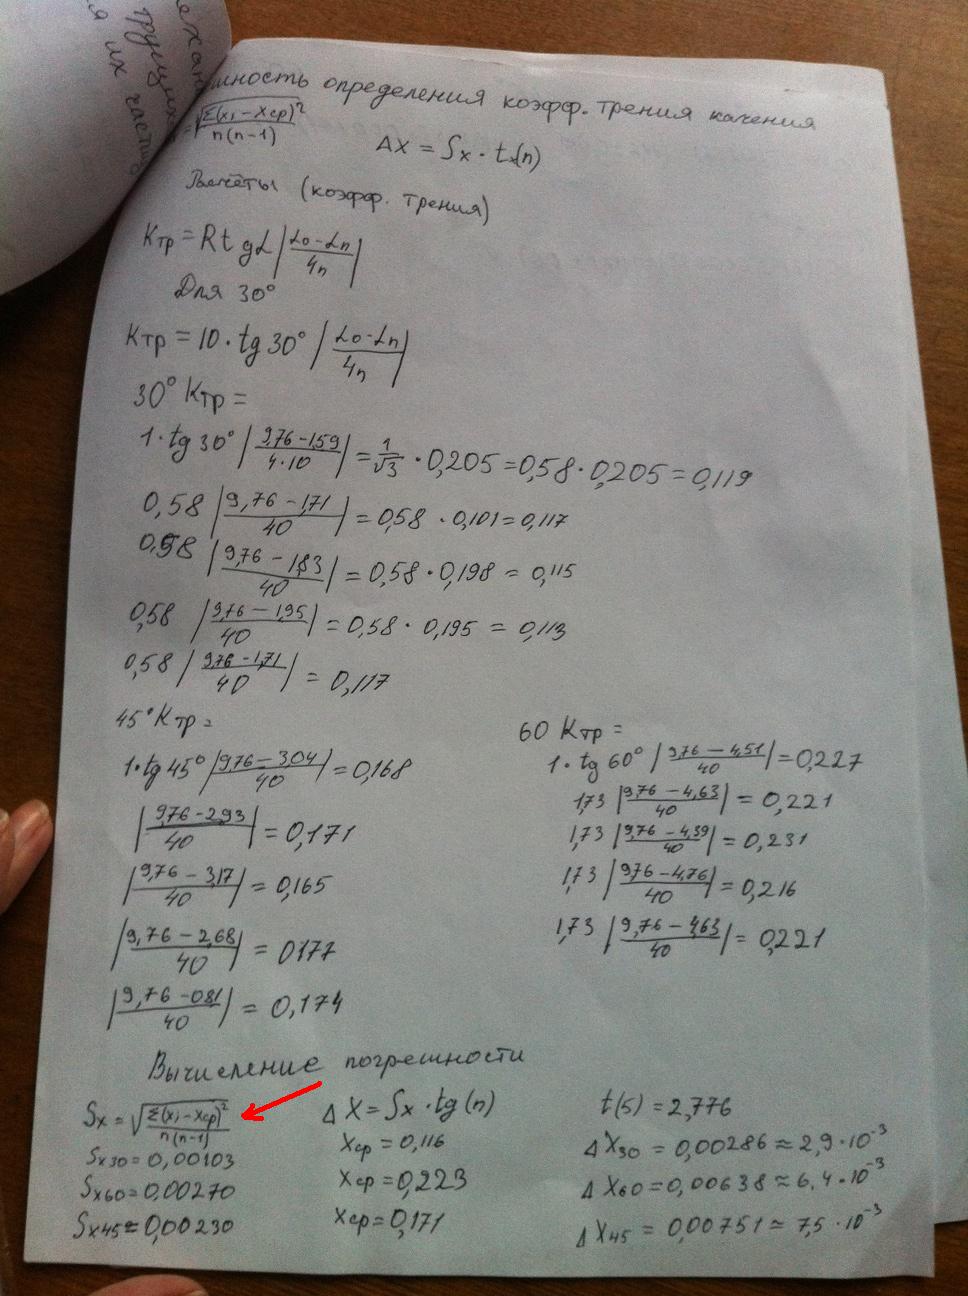 ность определения коэфф. трения качения
= √ Σ(xi - xср)² / n(n-1)
ΔX = Sx · t (n)
Расчёты (коэфф. трения)
Kтр = Rtgα |α0 - αn / 4n|
Для 30°
Kтр = 10 · tg 30° |α0 - αn / 4n|
30° Kтр =
1 · tg 30° |9,76 - 1,59 / 4·10| = 1/√3 · 0,205 = 0,58 · 0,205 = 0,119
0,58 |9,76 - 1,71 / 40| = 0,58 · 0,101 = 0,117
0,58 |9,76 - 1,83 / 40| = 0,58 · 0,198 = 0,115
0,58 |9,76 - 1,95 / 40| = 0,58 · 0,195 = 0,113
0,58 |9,76 - 1,71 / 40| = 0,117
45° Kтр =
1 · tg 45° |9,76 - 3,04 / 40| = 0,168
|9,76 - 2,93 / 40| = 0,171
|9,76 - 3,17 / 40| = 0,165
|9,76 - 2,68 / 40| = 0177
|9,76 - 081 / 40| = 0,174
60 Kтр =
1 · tg 60° |9,76 - 4,51 / 40| = 0,227
1,73 |9,76 - 4,63 / 40| = 0,221
1,73 |9,76 - 4,39 / 40| = 0,231
1,73 |976 - 4,76 / 40| = 0,216
1,73 |9,76 - 4,63 / 40| = 0,221
Вычисление погрешности
Sx = √ Σ(xi - xср)² / n(n-1)
Sx30 = 0,00103
Sx60 = 0,00270
Sx45 = 0,00230
ΔX = Sx · tg (n)
Xср = 0,116
Xср = 0,223
Xср = 0,171
t(5) = 2,776
ΔX30 = 0,00286 ≈ 2,9 · 10⁻³
ΔX60 = 0,00638 ≈ 6,4 · 10⁻³
ΔX45 = 0,00751 ≈ 7,5 · 10⁻³